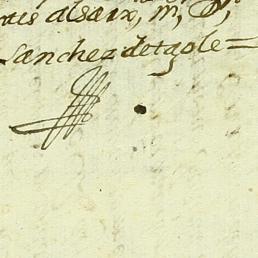 alsaix, m, D,
Sanchez de tagle =